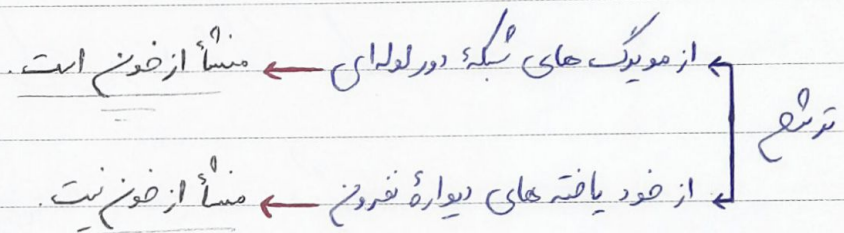 از مویرگ های شبکۀ دور لوله‌ای ← منشأ از خون است.
ترشح
از خود یاخته های دیوارۀ نفرون ← منشأ از خون نیست.